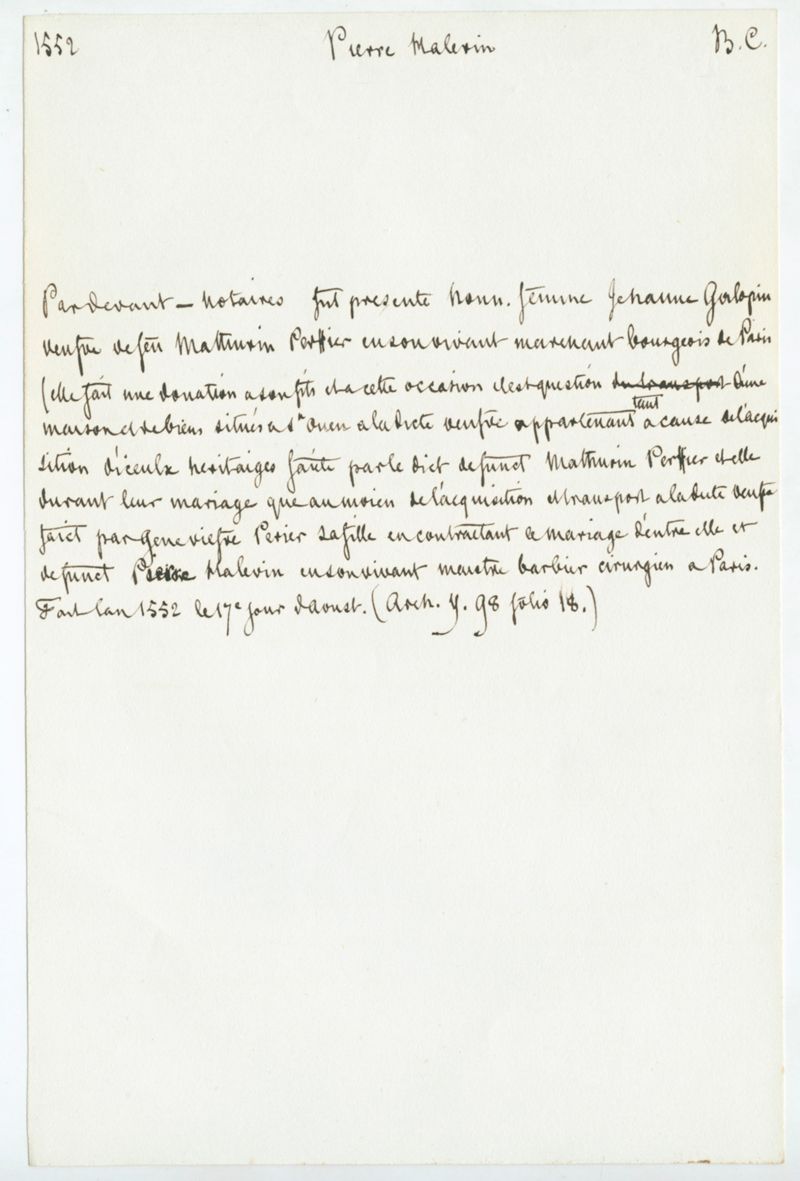 1552 Pierre Malevin B. C.
Pardevant — notaires fut presente honn. femme Jehanne Galopin
veufve de feu Mathurin Perier en son vivant marchant bourgeois de Paris
(elle fait une donation a son fils et a cette occasion il est question du transport d'une
maison et de biens situés a St Ouen a la dicte veufve appartenant tant a cause de l'acqui
sition d'iceulx heritaiges faicte par le dict defunct Mathurin Perier et elle
durant leur mariage que au moien de l'acquisition et transport a la dicte veufve
faict par Geneviefve Perier sa fille en contractant le mariage d'entre elle et
defunct Pierre Malevin en son vivant maistre barbier cirurgien a Paris.
Fait l'an 1552 le 17e jour d'aoust. (Arch. Y. 98 folio 18.)